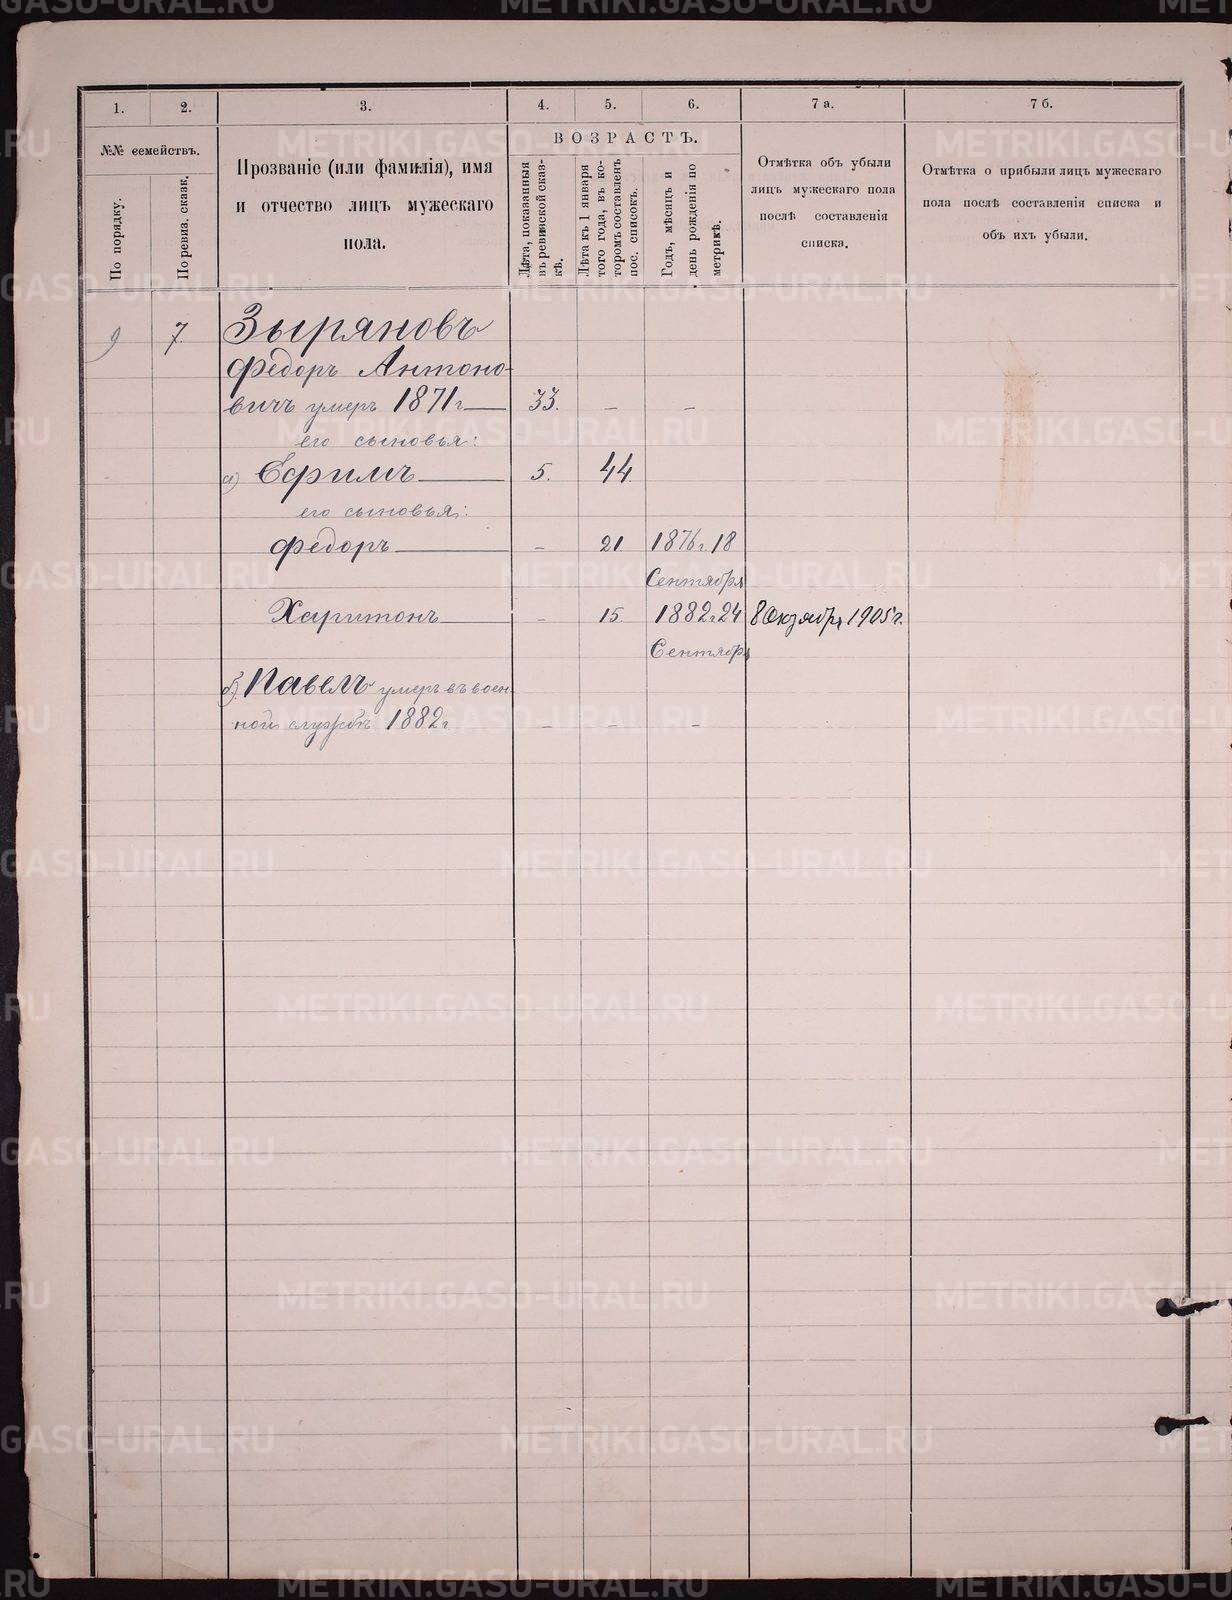 1. 2. 3. 4. 5. 6. 7 а. 7 б.
№№ семействъ.
По порядку.
По ревиз. сказк.
Прозваніе (или фамилія), имя
и отчество лицъ мужескаго
пола.
ВОЗРАСТЪ.
Лѣта, показанныя
въ ревизской сказ-
кѣ.
Лѣта къ 1 января
того года, въ ко-
торомъ составленъ
пос. списокъ.
Годъ, мѣсяцъ и
день рожденія по
метрикѣ.
Отмѣтка объ убыли
лицъ мужескаго пола
послѣ составленія
списка.
Отмѣтка о прибыли лицъ мужескаго
пола послѣ составленія списка и
объ ихъ убыли.
9 7. Зыряновъ
Федоръ Антоно-
вичъ умеръ 1871 г. — 33. — —
его сыновья:
а) Ефимъ — 5. 44.
его сыновья:
Федоръ — - 21 1876 г. 18
Сентября
Харитонъ — - 15. 1882 г. 24 8 Октября 1905 г.
Сентября
б) Павелъ умеръ въ воен-
ной службѣ 1882 г. — — —
METRIKI.GASO-URAL.RU